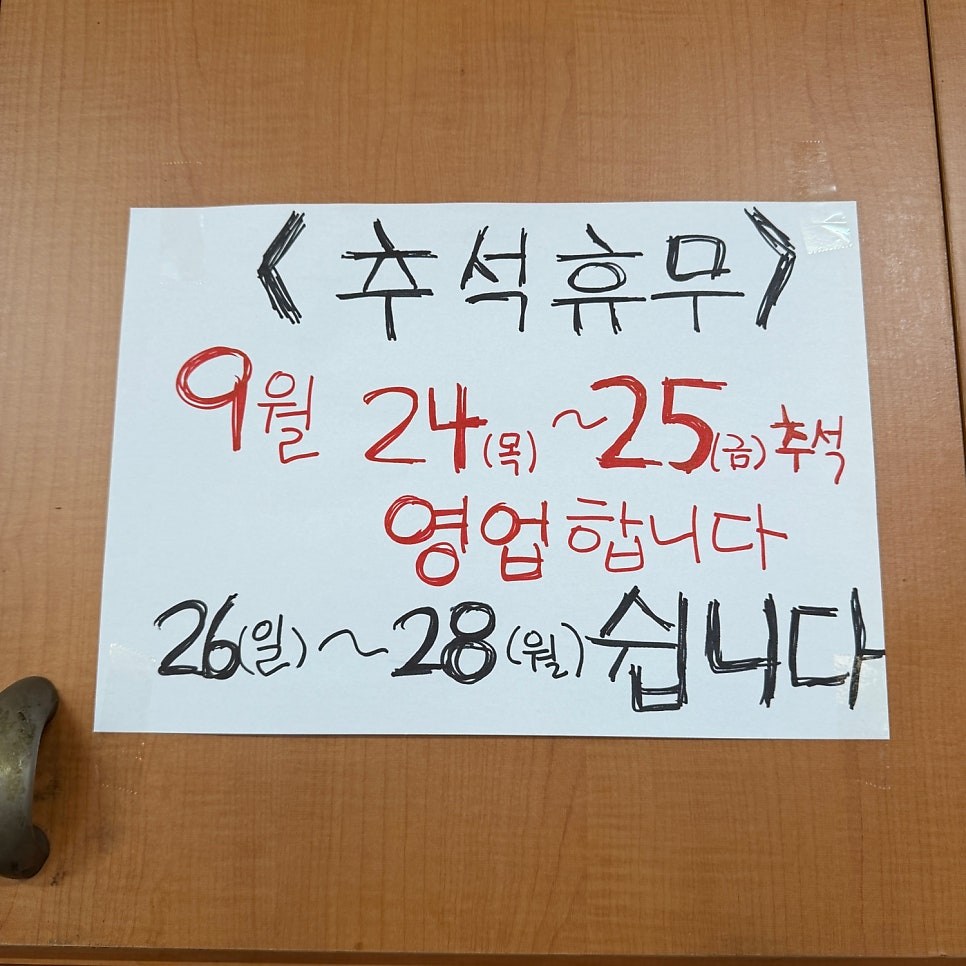 《추석휴무》
9월 24(목)~25(금)추석
영업합니다
26(일)~28(월)쉽니다